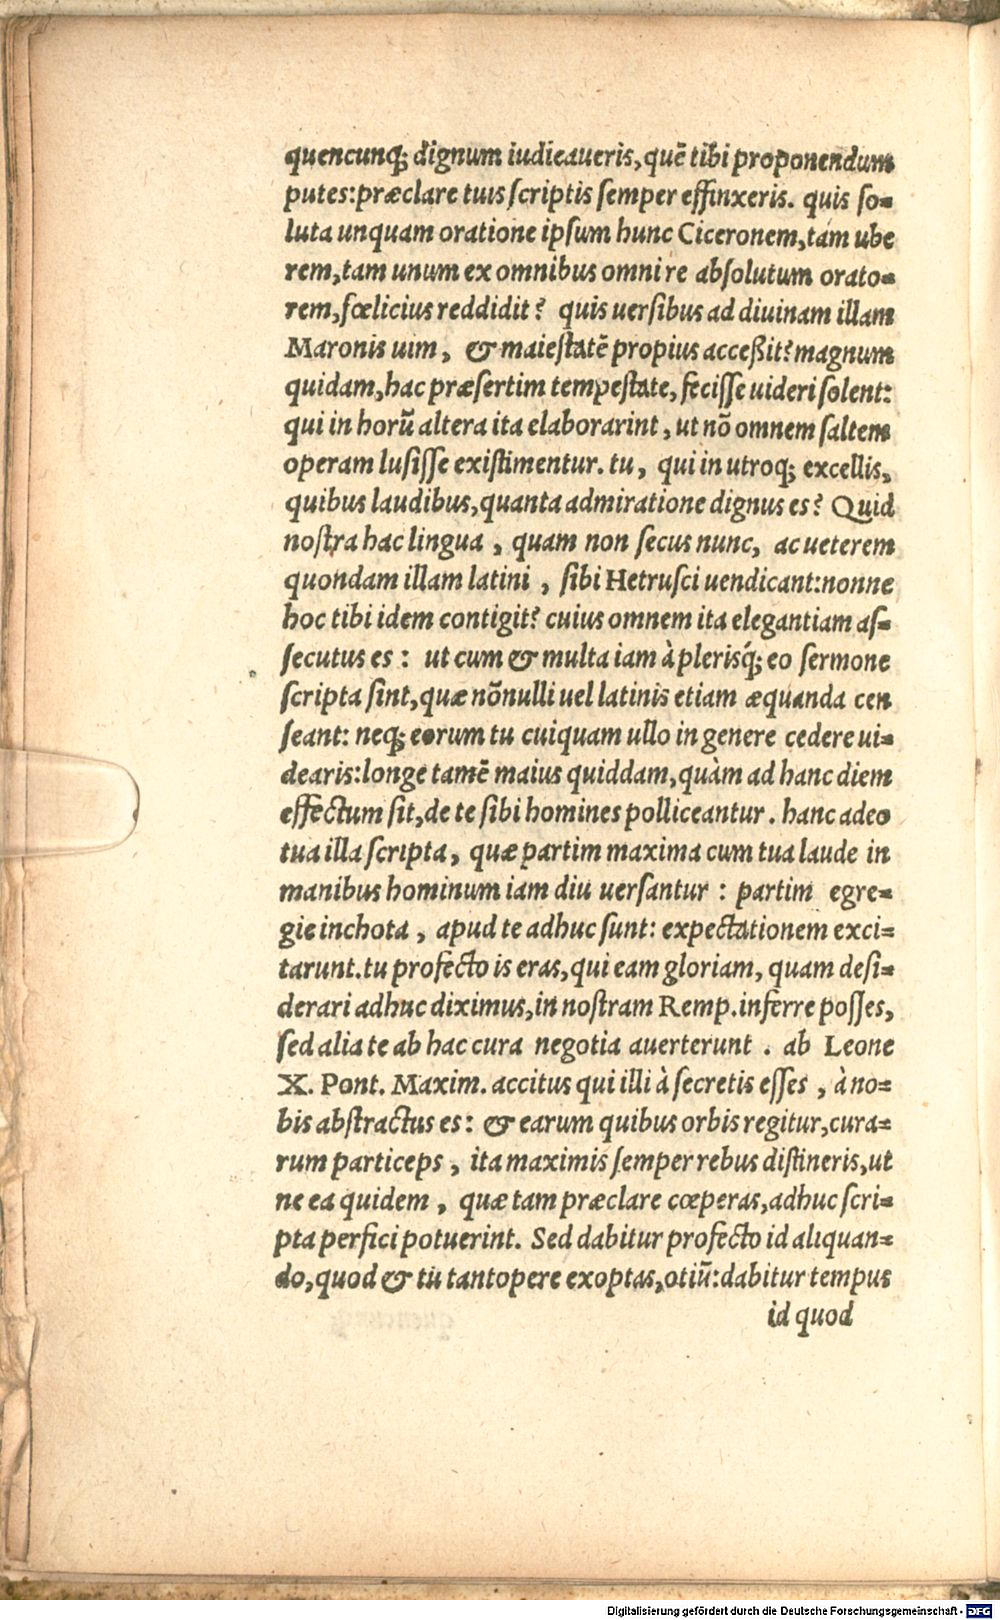 quencunq; dignum iudicaveris, quē tibi proponendum
putes: præclare tuis scriptis semper effinxeris. quis so=
luta unquam oratione ipsum hunc Ciceronem, tam ube
rem, tam unum ex omnibus omni re absolutum orato=
rem, fœlicius reddidit? quis uersibus ad diuinam illam
Maronis uim, & maiestatē propius acceßit? magnum
quidam, hac præsertim tempestate, fecisse uideri solent:
qui in horū altera ita elaborarint, ut nō omnem saltem
operam lusisse existimentur. tu, qui in utroq; excellis,
quibus laudibus, quanta admiratione dignus es? Quid
nostra hac lingua, quam non secus nunc, ac ueterem
quondam illam latini, sibi Hetrusci uendicant: nonne
hoc tibi idem contigit? cuius omnem ita elegantiam as=
secutus es: ut cum & multa iam à plerisq́; eo sermone
scripta sint, quæ nōnulli uel latinis etiam æquanda cen
seant: neq; eorum tu cuiquam ullo in genere cedere ui=
dearis: longe tamē maius quiddam, quàm ad hanc diem
effectum sit, de te sibi homines polliceantur. hanc adeo
tua illa scripta, quæ partim maxima cum tua laude in
manibus hominum iam diu uersantur: partim egre=
gie inchota, apud te adhuc sunt: expectationem exci=
tarunt. tu profecto is eras, qui eam gloriam, quam desi=
derari adhuc diximus, in nostram Remp. inferre posses,
sed alia te ab hac cura negotia auerterunt. ab Leone
X. Pont. Maxim. accitus qui illi à secretis esses, à no=
bis abstractus es: & earum quibus orbis regitur, cura=
rum particeps, ita maximis semper rebus distineris, ut
ne ea quidem, quæ tam præclare cœperas, adhuc scri=
pta perfici potuerint. Sed dabitur profecto id aliquan=
do, quod & tu tantopere exoptas, otiū: dabitur tempus
id quod
Digitalisierung gefördert durch die Deutsche Forschungsgemeinschaft - DFG